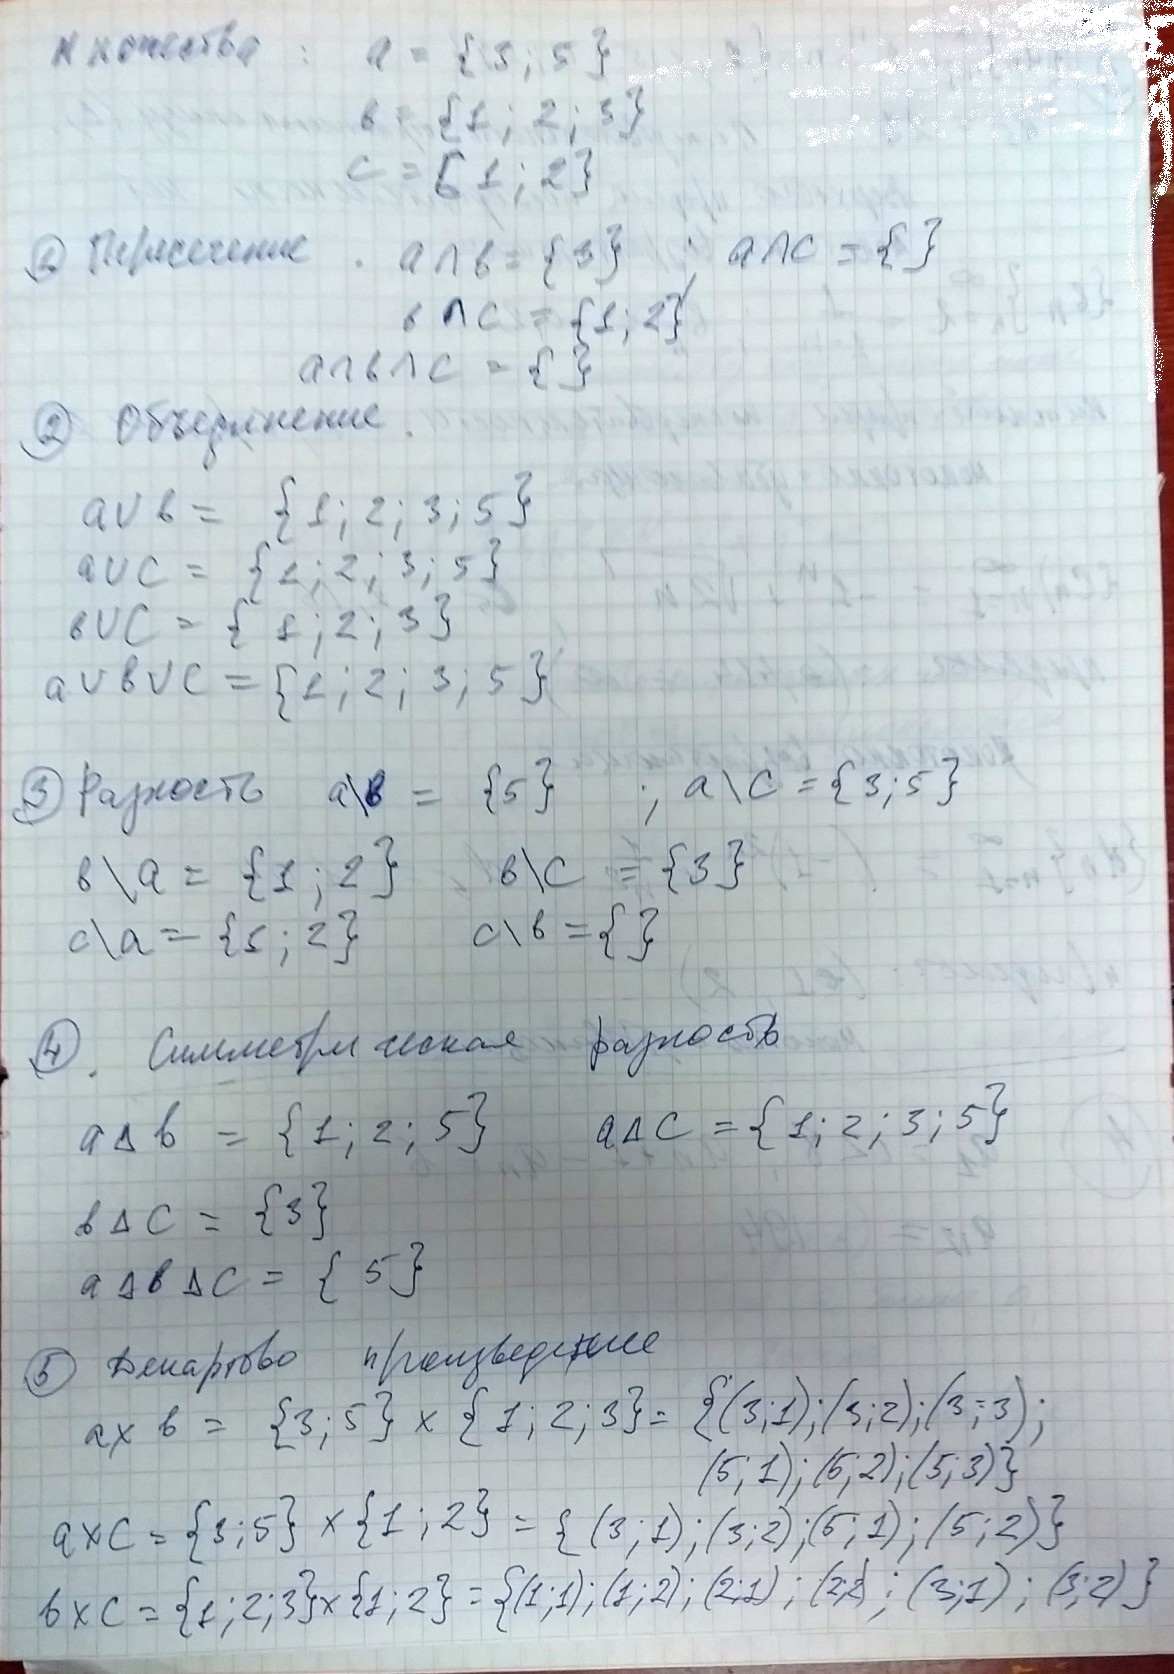 Множества : a = {3; 5}
в = {1; 2; 3}
c = {1; 2}
① Пересечение . a∩в = {3} ; a∩c = { }
в∩c = {1; 2}
a∩в∩c = { }
② Объединение .
a∪в = {1; 2; 3; 5}
a∪c = {1; 2; 3; 5}
в∪c = {1; 2; 3}
a∪в∪c = {1; 2; 3; 5}
③ Разность a\в = {5} ; a\c = {3; 5}
в\a = {1; 2} в\c = {3}
c\a = {1; 2} c\в = { }
④ . Симметрическая разность
a∆в = {1; 2; 5} a∆c = {1; 2; 3; 5}
в∆c = {3}
a∆в∆c = {5}
⑤ Декартово произведение
a×в = {3; 5} × {1; 2; 3} = {(3;1); (3;2); (3;3);
(5;1); (5;2); (5;3)}
a×c = {3; 5} × {1; 2} = {(3;1); (3;2); (5;1); (5;2)}
в×c = {1; 2; 3} × {1; 2} = {(1;1); (1;2); (2;1); (2;2); (3;1); (3;2)}